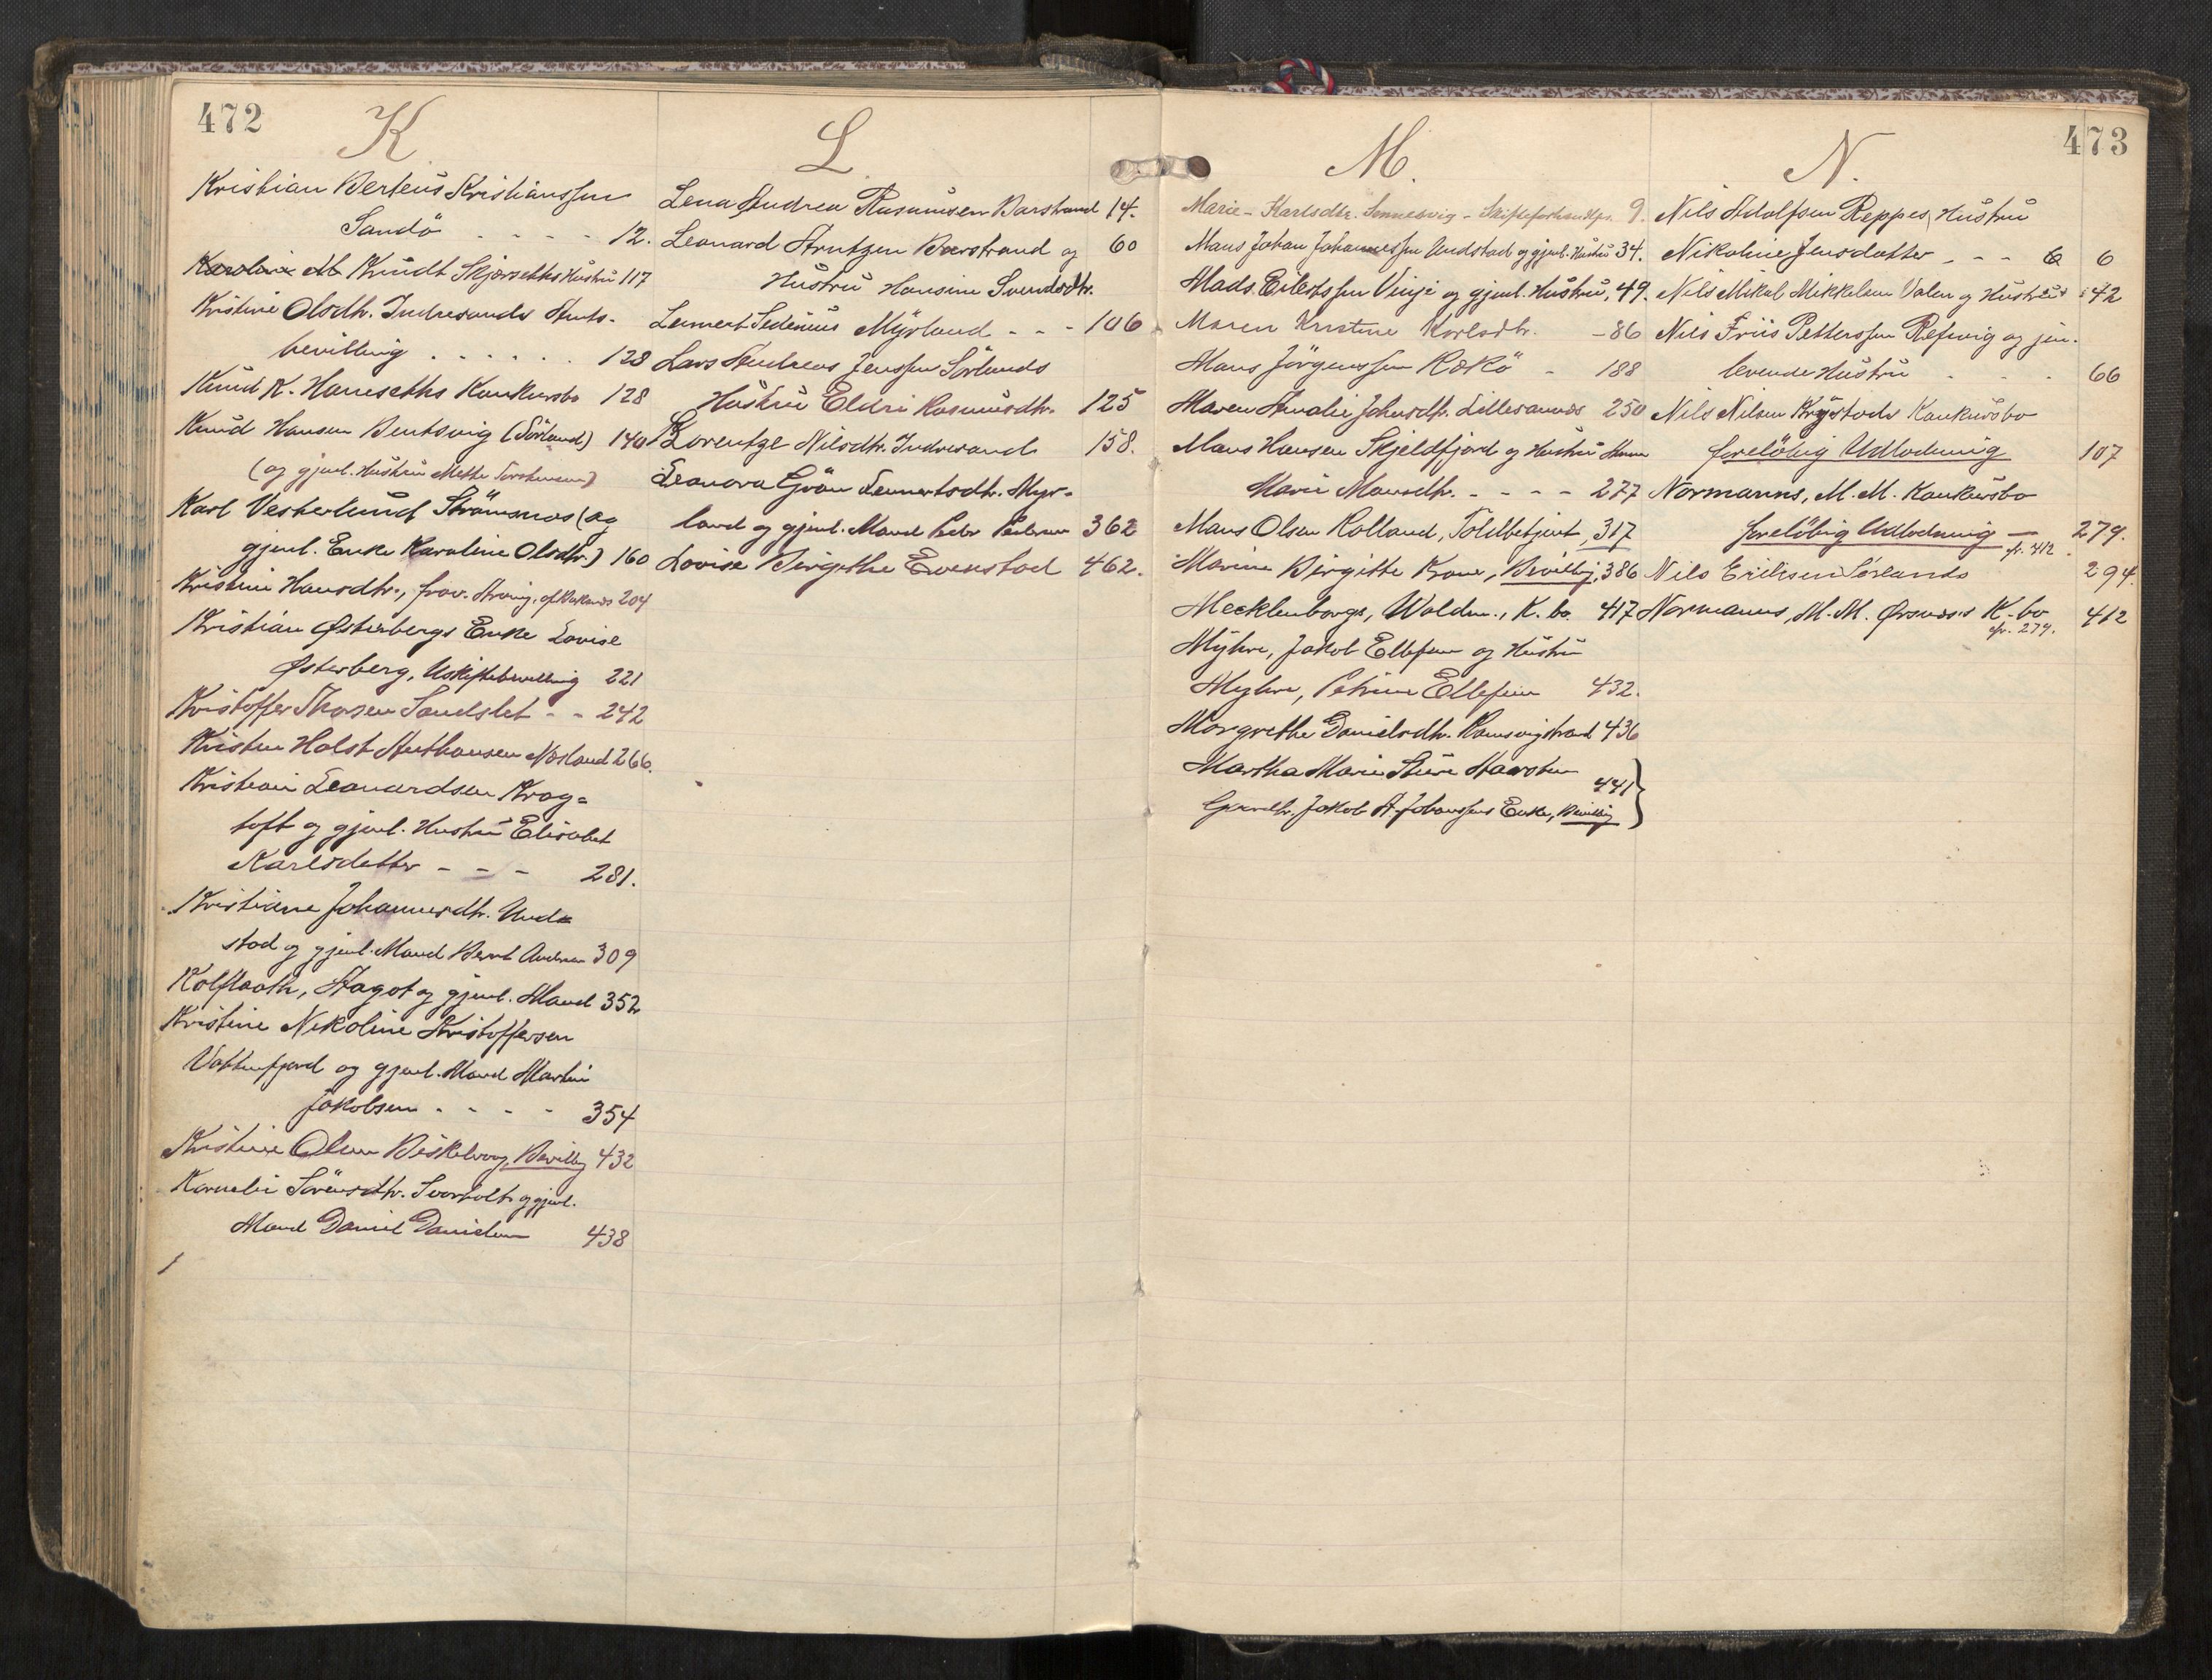 472
K
Kristian Berteus Kristianssen
Sandö - - - - 12.
Karoline M Knudt Skjærseths Hustru 117
Kristine Olsdtr. Indresands Amts-
bevilling . . . . . . 128
Knud K. Hanseths Konkursbo 128
Knud Hansen Bentsvig (Sörland) 140
(og gjenl. Hustru Mette Torstensen)
Karl Vesterlund Strömsnæs (og
gjenl. Enke Karoline Olsdtr.) 160
Kristine Hansdtr., frav. Arving, af 204
Kristian Østerbergs Enke Lovise
Østerberg, Uskiftebevilling 221
Kristoffer Thosen Sandslet - - 242
Kristen Holst Anthonsen Nösland 266.
Kristian Leonardsen Krag=
toft og gjenl. Hustru Elisabet
Karlsdatter - - - 281.
Kristiane Johannesdtr. Und=
stad og gjenl. Mand Bernt Andersen 309
Kolflaath, Aagot og gjenl. Mand 352
Kristine Nikoline Kristoffersen
Vatterfjord og gjenl. Mand Martin
Jakobsen - - - - 354
Kristine Olsen Biskelvaag, Bevillg 432
Kornelie Sörensdtr. Svarholt og gjenl.
Mand Daniel Danielsen 438
L.
Lena Andrea Rasmusen Barstrand 14.
Leonard Arntzen Barstrand og 60
Hustru Hansine Svendsdtr.
Lennert Sedenius Myrland - - - 106
Lars Andreas Jenssen Sörlands
Hustru Eldri Rasmusdtr. 125
Lorentze Nilsdtr. Indresand 158.
Leonora Grön Lennertsdtr. Myr=
land og gjenl. Mand Peder Pedersen 362
Lovise Birgithe Evenstad 462.
473
M.
Marie Karlsdtr. Sennesvig - Skifteforhandlgr. 9.
Mans Johan Johannessen Undstad og gjenl. Hustru 34.
Mads Eilertssen Vinje og gjenl. Hustru, 49.
Maren Kristine Karlsdtr. - 86
Hans Jörgenssen Rækö - 188
Maren Amalie Johnsdtr. Lillesannds 250
Mans Hansen Skjeldfjord og Hustru
Marie Mansdtr. - - - - 277
Mans Olsen Rolland, Toldbetjent, 317
Marine Birgitte Krane, Bevillg, 386
Mecklenborgs, Waldm., K. bo. 417
Myhre, Jakob Ellefsen og Hustru
Myhre, Petrine Ellefsen 432.
Margrethe Danielsdtr. Ramsvigstrand 436
Martha Marie Stüre
441
Jakob A. Johanssens Enke, Bevillg
N.
Nils Adolfsen Reppes Hustru
Nikoline Jensdatter - - - 6 6
Nils Mikal Mikkelsen Valen og Hustru 42
Nils Friis Petterssen Refsvig og jen-
levende Hustru . . . 66
Nils Nilsen Krystads Konkursbo
foreløbig Udlodning 107
Normanns, M. M. Konkursbo
foreløbig Udlodning — 279.
cfr. 412.
Nils Eriksen Sørlands 294.
Normanns, M. M. Ørsnæs's K.-bo 412
cfr. 279.